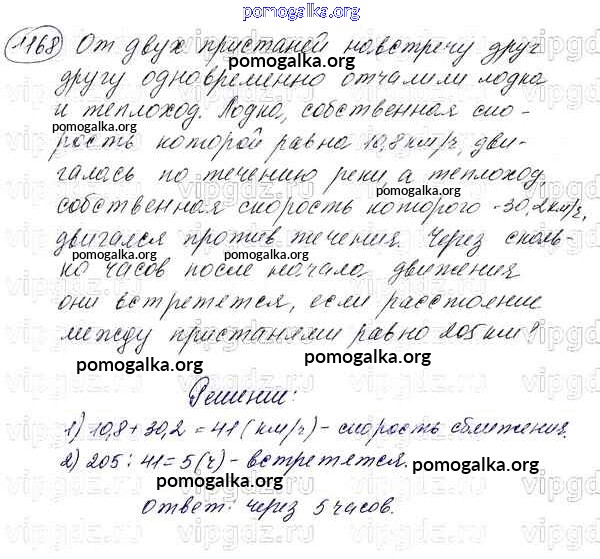 pomogalka.org
1168 От двух пристаней навстречу друг
другу одновременно отчалили лодка
pomogalka.org
и теплоход. Лодка, собственная ско-
pomogalka.org
рость которой равна 10,8 км/ч, дви-
галась по течению реки а теплоход,
pomogalka.org
собственная скорость которого - 30,2 км/ч,
двигался против течения. Через сколь-
pomogalka.org
ко часов после начала движения
они встретятся, если расстояние
между пристанями равно 205 км?
pomogalka.org pomogalka.org
Решение:
1) 10,8 + 30,2 = 41 (км/ч) - скорость сближения.
pomogalka.org
2) 205 : 41 = 5 (ч) - встретятся.
pomogalka.org
Ответ: через 5 часов.